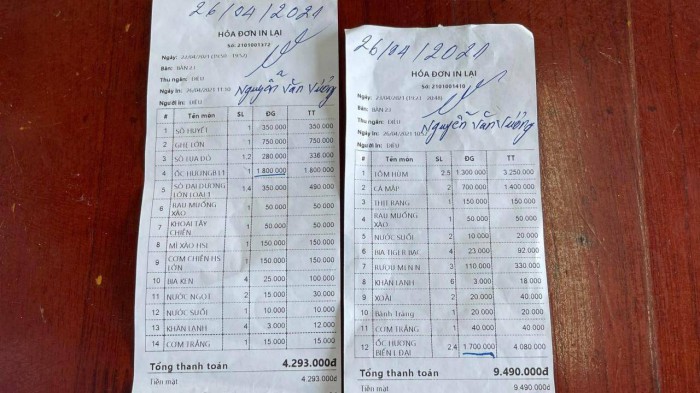 26/04/2021
HÓA ĐƠN IN LẠI
Số: 2101001372
Ngày: 22/04/2021 (19:50 - 19:52)
Bàn: BÀN 23
Thu ngân: DIỆU
Ngày in: 26/04/2021 11:10
Người in: DIỆU
Nguyễn Văn Vưởng
# Tên món SL ĐG TT
1 SÒ HUYẾT 1 350 000 350 000
2 GHẸ LỚN 1 750 000 750 000
3 SÒ LỤA ĐỎ 1.2 280 000 336 000
4 ỐC HƯƠNG BL1 1 1 800 000 1 800 000
5 SÒ ĐẠI DƯƠNG LỚN LOẠI 1 1.4 350 000 490 000
6 RAU MUỐNG XÀO 1 50 000 50 000
7 KHOAI TÂY CHIÊN 1 50 000 50 000
8 MÌ XÀO HSL 1 150 000 150 000
9 CƠM CHIÊN HS LỚN 1 150 000 150 000
10 BIA KEN 4 25 000 100 000
11 NƯỚC NGỌT 2 15 000 30 000
12 NƯỚC SUỐI 1 10 000 10 000
13 KHĂN LẠNH 4 3 000 12 000
14 CƠM TRẮNG 1 15 000 15 000
Tổng thanh toán 4.293.000đ
Tiền mặt 4.293.000đ
26/04/2021
HÓA ĐƠN IN LẠI
Số: 2101001410
Ngày: 23/04/2021 20:48)
Bàn: BÀN 22
Thu ngân: DIỆU
Ngày in: 26/04/2021
Người in: DIỆU
Nguyễn Văn Vưởng
# Tên món SL ĐG TT
1 TÔM HÙM 2.5 1 300 000 3 250 000
2 CÁ MẬP 2 700 000 1 400 000
3 THỊT RANG 1 150 000 150 000
4 RAU MUỐNG XÀO 1 50 000 50 000
5 NƯỚC SUỐI 2 10 000 20 000
6 BIA TIGER BẠC 4 23 000 92 000
7 RƯỢU MEN N 3 110 000 330 000
8 KHĂN LẠNH 6 3 000 18 000
9 XOÀI 2 20 000 40 000
10 Bánh Tráng 1 20 000 20 000
11 CƠM TRẮNG 1 40 000 40 000
12 ỐC HƯƠNG BIỂN L ĐẠI 2.4 1 700 000 4 080 000
Tổng thanh toán 9.490.000đ
Tiền mặt 9.490.000đ